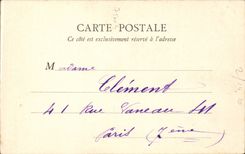 CARTE POSTALE
Ce côté est exclusivement réservé à l'adresse
Madame
Clément
41 Rue Vaneau
Paris (7ème)